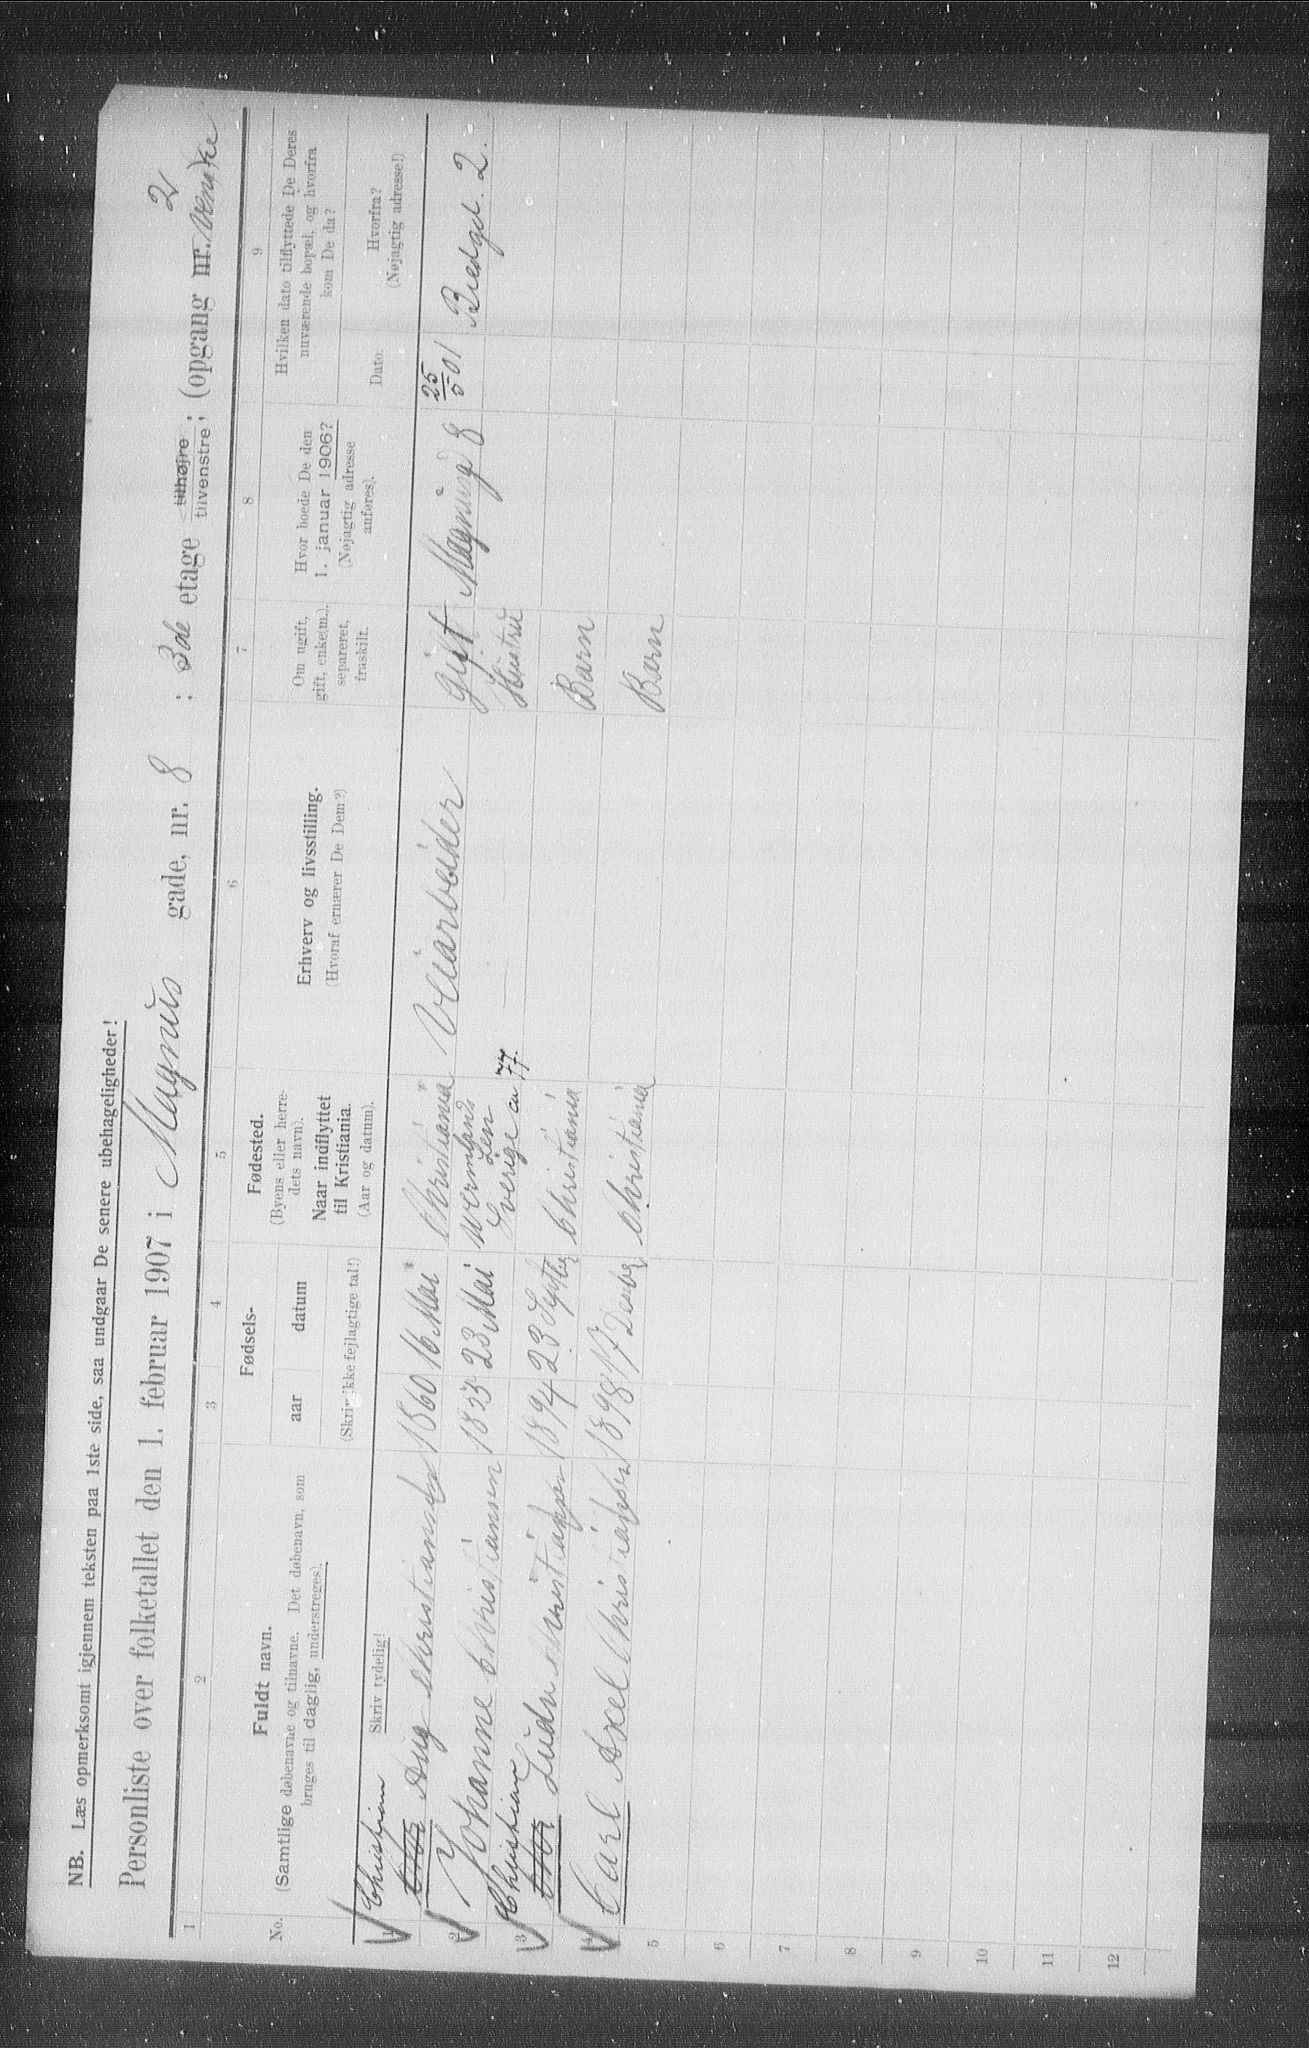 NB. Læs opmerksomt igjennem teksten paa 1ste side, saa undgaar De senere ubehageligheder!
Personliste over folketallet den 1. februar 1907 i Magnus gade, nr. 8 : 3de etage tilhøjre tilvenstre; (opgang nr. 2
1 2 3 4 5 6 7 8 9
No.
Fuldt navn.
(Samtlige døbenavne og tilnavne. Det døbenavn, som
bruges til daglig, understreges).
Skriv tydelig!
Fødsels-
aar datum
(Skriv ikke fejlagtige tal!)
Fødested.
(Byens eller herre-
dets navn).
Naar indflyttet
til Kristiania.
(Aar og datum).
Erhverv og livsstilling.
(Hvoraf ernærer De Dem?)
Om ugift,
gift, enke(m.),
separeret,
fraskilt.
Hvor boede De den
1. januar 1906?
(Nøjagtig adresse
anføres).
Hvilken dato tilflyttede De Deres
nuværende bopæl, og hvorfra
kom De da?
Dato:
Hvorfra?
(Nøjagtig adresse!)
1 Christian Aug Christiansen 1860 16 Mai Christiania Veiarbeider Gift Magnusg 8 25/5 01 Bredgd. 2.
2 Johanne Christiansen 23 Mai Wermlands Len Sverige ca 77. Hustru
3 Christian Ludv Christiansen 1894 23 Septbr Christiania Barn
4 Carl Axel Christiansen 1898 17 Desbr Christiania Barn
5
6
7
8
9
10
11
12